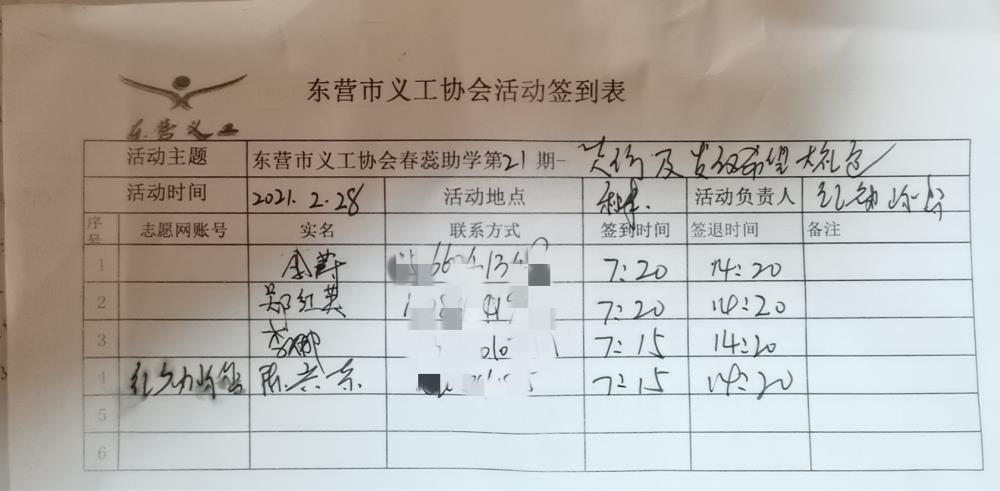 东营市义工协会活动签到表
东营义工
活动主题 东营市义工协会春蕊助学第21期- 及发放希望大礼包
活动时间 2021.2.28 活动地点 利津. 活动负责人
序号 志愿网账号 实名 联系方式 签到时间 签退时间 备注
1 李蔚 7:20 14:20
2 郑红英 7:20 14:20
3 李娜 7:15 14:20
4 7:15 14:20
5
6